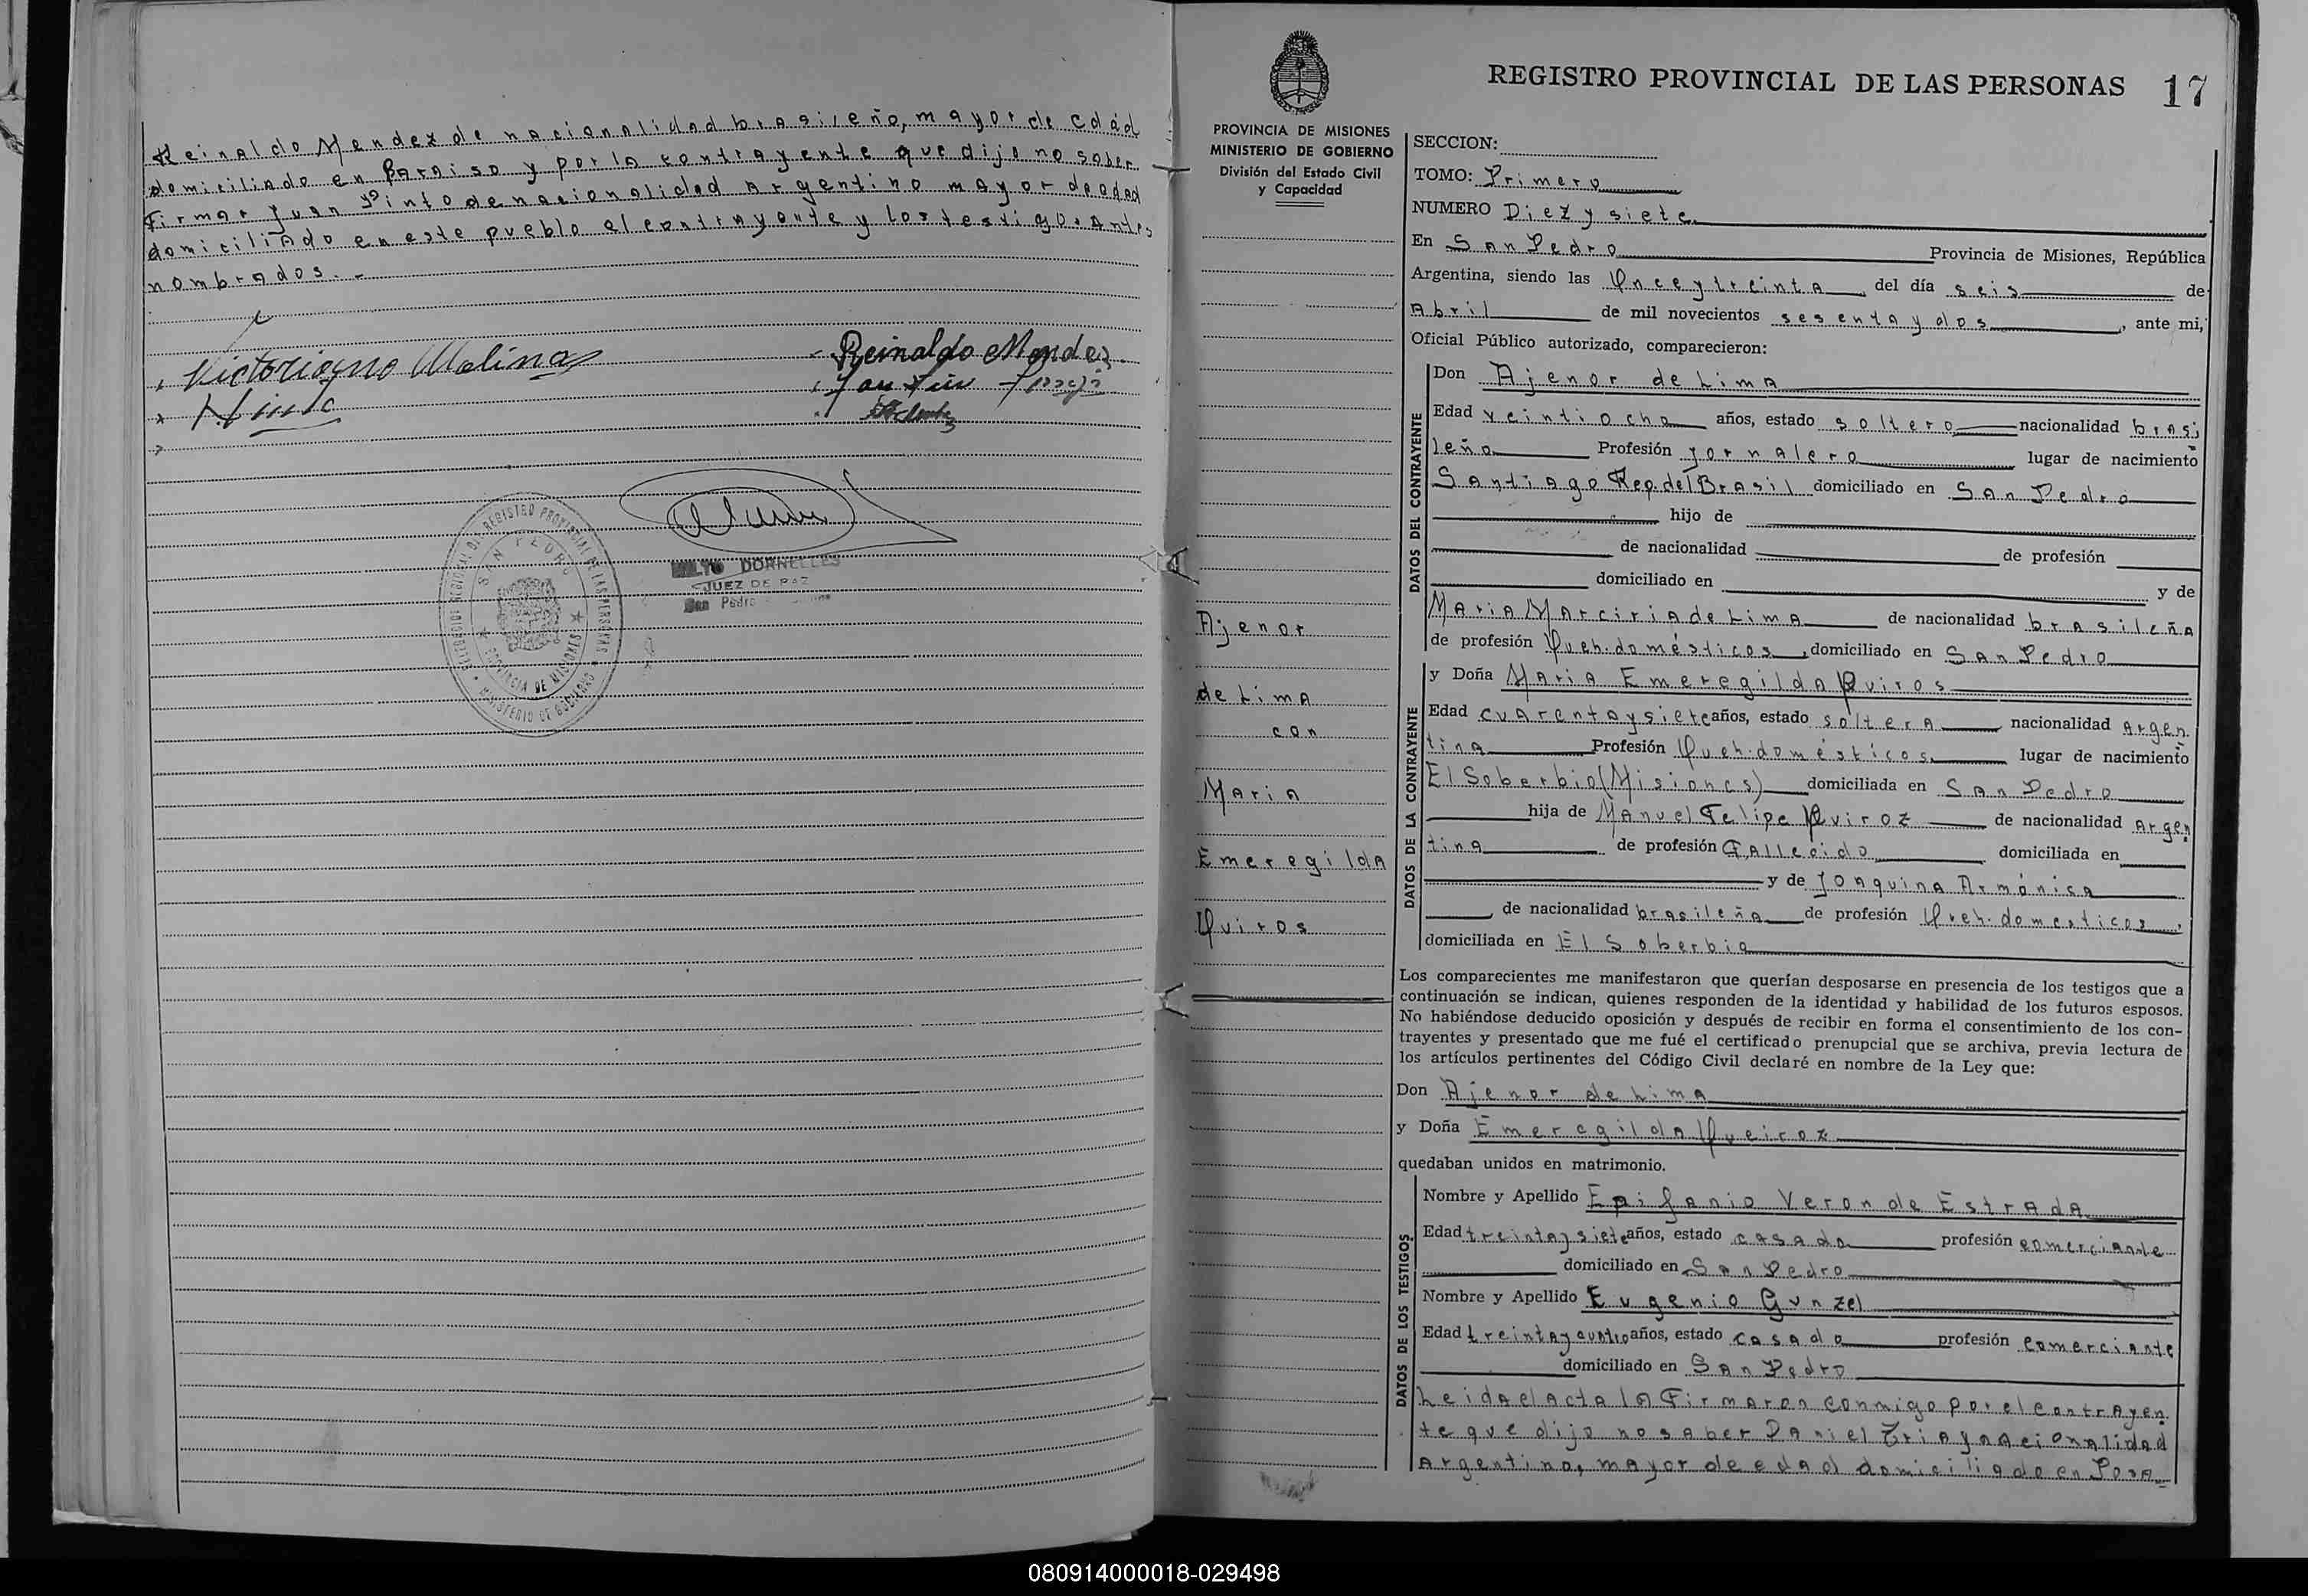 Reinaldo Mendez de nacionalidad brasileño, mayor de edad
domiciliado en Paraiso y por la contrayente que dijo no saber
firmar Juan Pinto de nacionalidad Argentino mayor de edad
domiciliado en este pueblo el contrayente y los testigos Antes
nombrados.-
Victoriano Molinas
Reinaldo Mendez
MILTO DORNELLES
JUEZ DE PAZ
San Pedro
SAN PEDRO
PROVINCIA DE MISIONES
MINISTERIO DE GOBIERNO
REGISTRO PROVINCIAL DE LAS PERSONAS 17
PROVINCIA DE MISIONES
MINISTERIO DE GOBIERNO
División del Estado Civil
y Capacidad
Ajenor
de Lima
con
Maria
Emeregilda
Quiros
SECCION:
TOMO: Primero
NUMERO Diez y siete
En San Pedro Provincia de Misiones, República
Argentina, siendo las Once y treinta del día seis de
Abril de mil novecientos sesenta y dos, ante mi,
Oficial Público autorizado, comparecieron:
DATOS DEL CONTRAYENTE
Don Ajenor de Lima
Edad veintiocho años, estado soltero nacionalidad brasi
leño Profesión jornalero lugar de nacimiento
Santiago Rep. del Brasil domiciliado en San Pedro
hijo de
de nacionalidad de profesión
domiciliado en y de
Maria Marciria de Lima de nacionalidad brasileña
de profesión Queh. domésticos, domiciliado en San Pedro
DATOS DE LA CONTRAYENTE
y Doña Maria Emeregilda Quiros
Edad cuarenta y siete años, estado soltera nacionalidad Argen
tina Profesión Queh. domésticos, lugar de nacimiento
El Soberbio (Misiones) domiciliada en San Pedro
hija de Manuel Felipe Quiroz de nacionalidad Argen
tina de profesión Fallecido domiciliada en
y de Joaquina Armónica
, de nacionalidad brasileña de profesión Queh. domesticos,
domiciliada en El Soberbio
Los comparecientes me manifestaron que querían desposarse en presencia de los testigos que a
continuación se indican, quienes responden de la identidad y habilidad de los futuros esposos.
No habiéndose deducido oposición y después de recibir en forma el consentimiento de los con-
trayentes y presentado que me fué el certificado prenupcial que se archiva, previa lectura de
los artículos pertinentes del Código Civil declaré en nombre de la Ley que:
Don Ajenor de Lima
y Doña Emeregilda Queiroz
quedaban unidos en matrimonio.
DATOS DE LOS TESTIGOS
Nombre y Apellido Epifanio Veron de Estrada
Edad treinta y siete años, estado casado profesión comerciante
domiciliado en San Pedro
Nombre y Apellido Eugenio Gunzel
Edad treinta y cuatro años, estado casado profesión comerciante
domiciliado en San Pedro
Leida el acta la Firmaron conmigo por el contrayen
te que dijo no saber Daniel Triay nacionalidad
Argentino, mayor de edad domiciliado en Posa
080914000018-029498